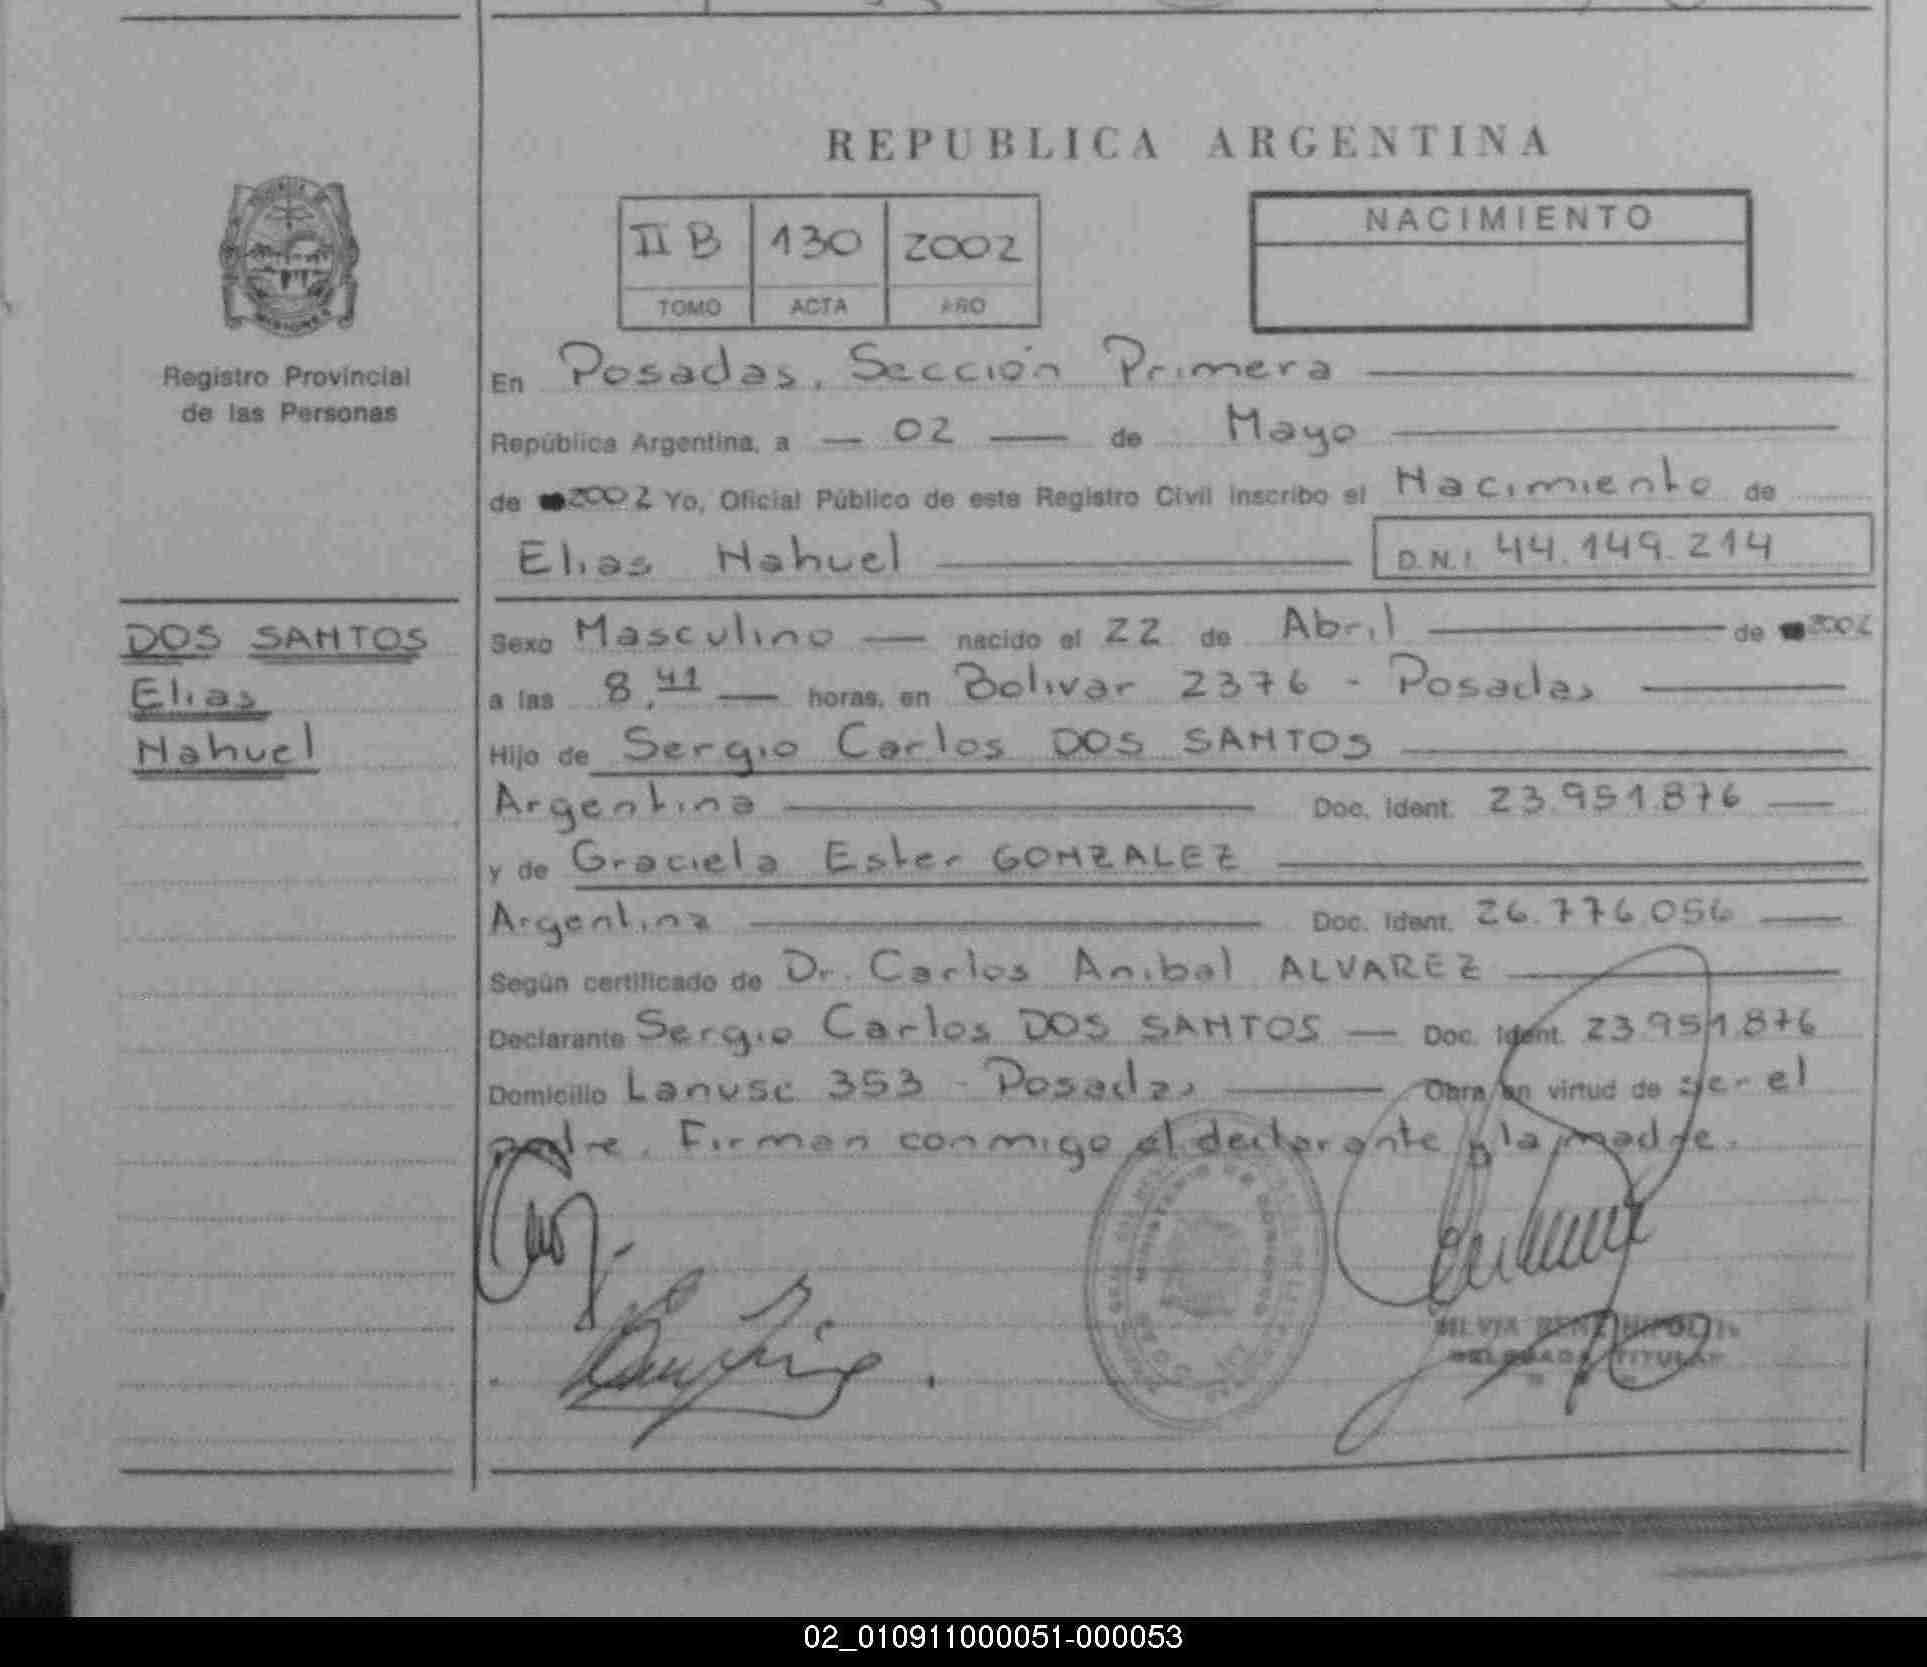 REPUBLICA ARGENTINA
II B 130 2002
TOMO ACTA AÑO
NACIMIENTO
MISIONES
Registro Provincial
de las Personas
En Posadas, Sección Primera
República Argentina, a 02 de Mayo
de 2002 Yo, Oficial Público de este Registro Civil inscribo el Nacimiento de
Elias Nahuel D.N.I. 44.149.214
DOS SANTOS
Elias
Nahuel
Sexo Masculino nacido el 22 de Abril de 2002
a las 8,41 horas, en Bolivar 2376 - Posadas
Hijo de Sergio Carlos DOS SANTOS
Argentina Doc. Ident. 23.951.876
y de Graciela Ester GONZALEZ
Argentina Doc. Ident. 26.776.056
Según certificado de Dr. Carlos Anibal ALVAREZ
Declarante Sergio Carlos DOS SANTOS Doc. Ident. 23.951.876
Domicilio Lanusse 353 - Posadas Obra en virtud de ser el
padre. Firman conmigo el declarante y la madre.
MINISTERIO DE GOBIERNO
SILVIA
DELEGADA TITULAR
02_010911000051-000053